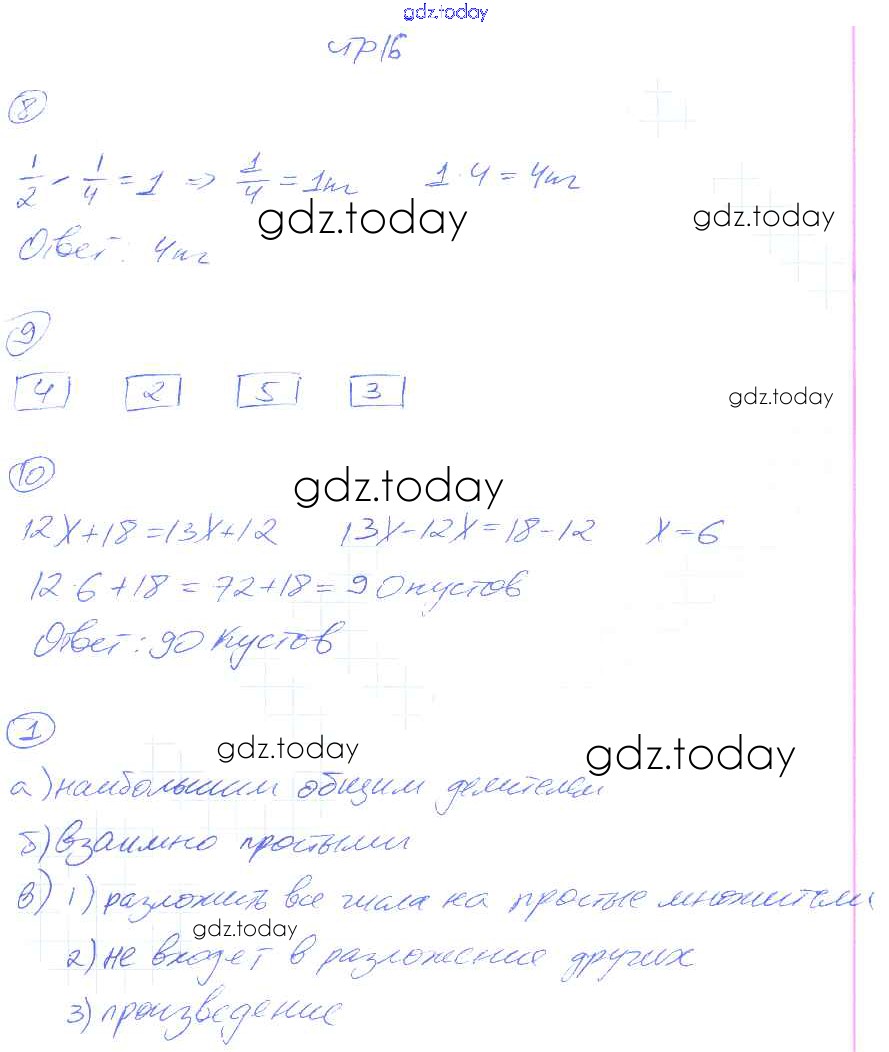 gdz.today
стр16
8
1/2 - 1/4 = 1 => 1/4 = 1кг 1·4 = 4кг
gdz.today gdz.today
Ответ: 4кг
9
4 2 5 3
gdz.today
10
gdz.today
12x+18=13x+12 13x-12x=18-12 x=6
12·6+18 = 72+18 = 90 кустов
Ответ: 90 кустов
1
gdz.today gdz.today
а) наибольшим общим делителем
б) взаимно простыми
в) 1) разложить все числа на простые множители
gdz.today
2) не входет в разложение других
3) произведение